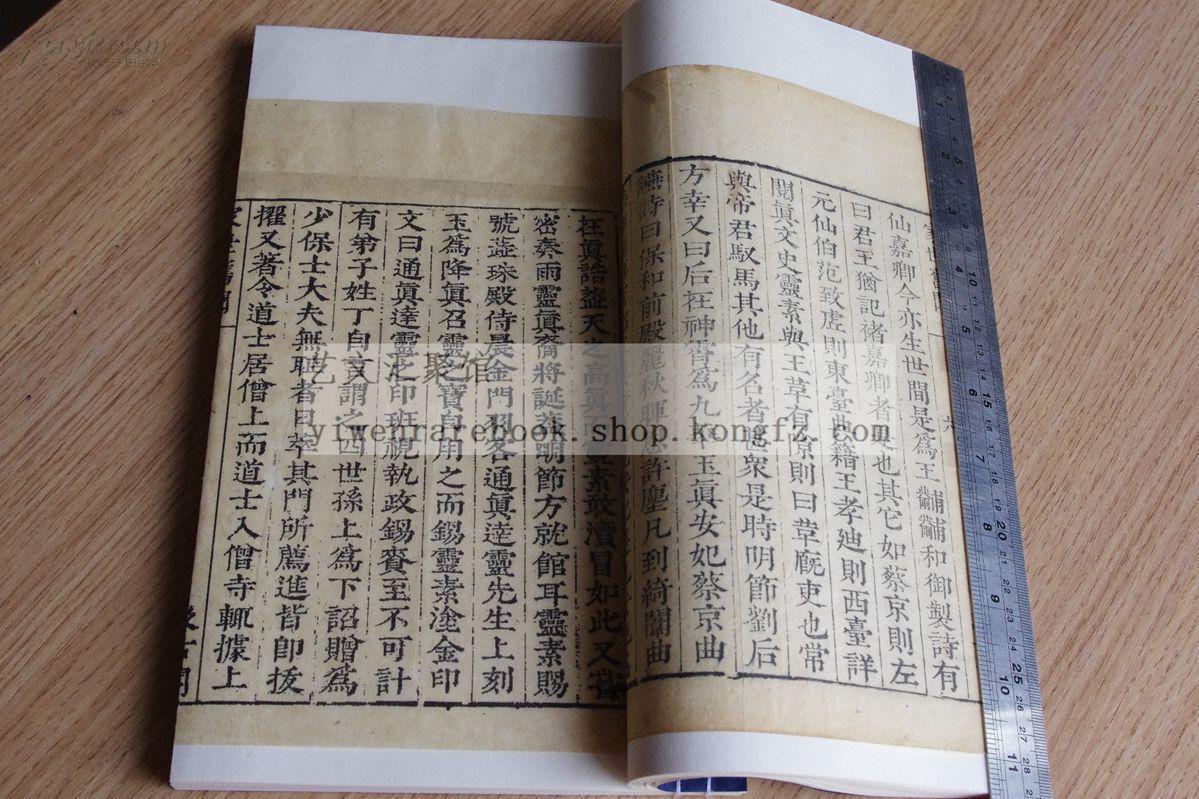 仙嘉卿今亦生世間是爲王黼黼和御製詩有
曰君王猶記禇嘉卿者是也其它如蔡京則左
元仙伯范致虚則東臺典籍王孝迪則西臺詳
閱眞文史靈素與王草有𨻶則曰草廐吏也常
與帝君馭馬其他有名者甚衆是時明節劉后
方幸又曰后在神霄爲九華玉眞安妃蔡京曲
讌詩曰保和前殿麗秋暉恩許塵凡到綺闈曲
在眞誥蓋天之高眞而靈素敢瀆冒如此又嘗
密奏雨靈眞裔將誕蓋明節方就館耳靈素賜
號蘂珠殿侍晨金門羽客通眞達靈先生上刻
玉爲降眞召靈之寶自用之而錫靈素塗金印
文曰通眞達靈之印班視執政錫賚至不可計
有弟子姓丁自言謂之四世孫上爲下詔贈爲
少保士大夫無耻者日萃其門所薦進皆即拔
擢又著令道士居僧上而道士入僧寺輒據上
家世舊聞
六
艺文汇聚馆
yiwenrarebook.shop.kongfz.com